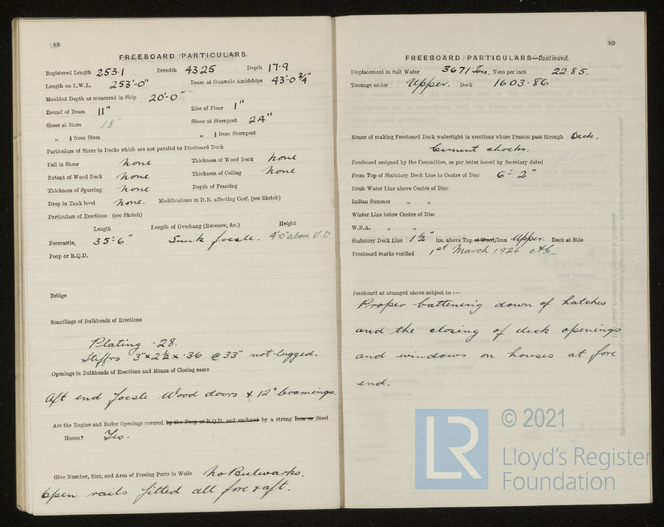 88
FREEBOARD PARTICULARS.
Registered Length 253.1 Breadth 43.25 Depth 17.9
Length on L.W.L. 253'-0" Beam at Gunwale Amidships 43'-0¾"
Moulded Depth as measured in Ship 20'-0"
Round of Beam 11" Rise of Floor 1"
Sheer at Stem 18" Sheer at Sternpost 24"
„ ⅛ from Stem „ ⅛ from Sternpost
Particulars of Sheer in Decks which are not parallel to Freeboard Deck
Fall in Sheer None Thickness of Wood Deck None
Extent of Wood Deck None Thickness of Ceiling None
Thickness of Sparring None Depth of Framing
Drop in Tank level None. Modifications in D.B. affecting Coef. (see Sketch)
Particulars of Erections (see Sketch)
Length Length of Overhang (Recesses, &c.) Height
Forecastle, 35'-6" Sunk focsle. 4'0 above U.D.
Poop or R.Q.D.
Bridge
Scantlings of Bulkheads of Erections
Plating .28.
Stiffrs 3"x2½x.36 @ 33" not lugged.
Openings in Bulkheads of Erections and Means of Closing same
Aft end focsle Wood doors & 12" Coamings
Are the Engine and Boiler Openings covered by the Poop or R.Q.D. and enclosed by a strong Iron or Steel
House? Yes.
Give Number, Size, and Area of Freeing Ports in Wells No Bulwarks.
Open rails fitted all fore & aft.
89
FREEBOARD PARTICULARS—Continued.
Displacement in Salt Water 3671 Tons, Tons per inch 22.85.
Tonnage under Upper Deck 1603.86
Means of making Freeboard Deck watertight in erections where Frames pass through Deck.
Cement chocks.
Freeboard assigned by the Committee, as per letter issued by Secretary dated
From Top of Statutory Deck Line to Centre of Disc 6'-2"
Fresh Water Line above Centre of Disc
Indian Summer „ „
Winter Line below Centre of Disc
W.N.A. „ „
Statutory Deck Line 1½" ins. above Top of Wood/Iron Upper. Deck at Side
Freeboard marks verified 1st March 1926
Freeboard as arranged above subject to :—
Proper battening down of hatches
and the closing of deck openings
and windows on houses at fore
end.
LR
© 2021
Lloyd's Register
Foundation